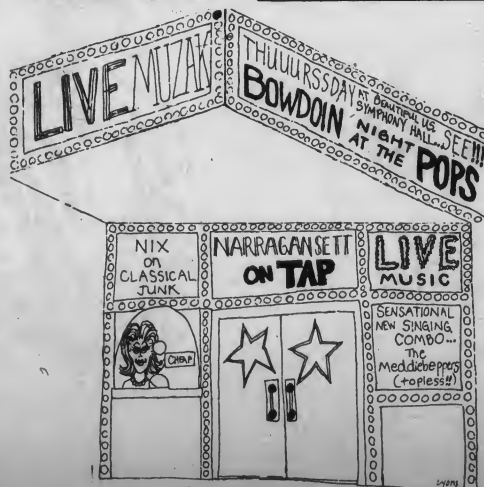 LIVE MUZAK
THUUURSSDAY AT BEAUTIFUL U.G.
SYMPHONY HALL... SEE!!!
BOWDOIN 'NIGHT
AT THE POPS
NIX
on
CLASSICAL
JUNK
NARRAGANSETT
ON TAP
LIVE
MUSIC
CHEAP
SENSATIONAL
NEW SINGING
COMBO...
The
Meddiebeppers
(topless!!)
Lyons